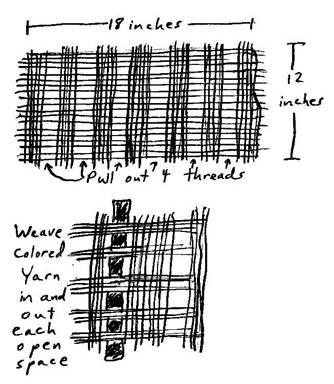 18 inches
12
inches
Pull out 4 threads
Weave
colored
Yarn
in and
out
each
open
space